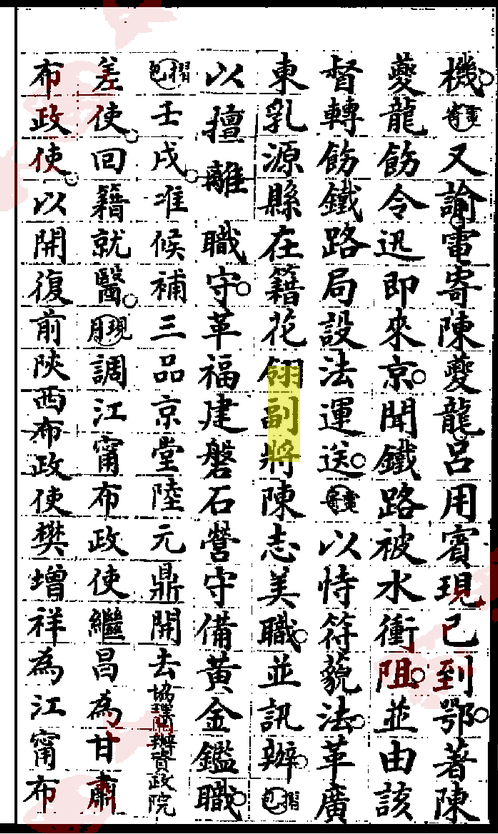 機電寄又諭電寄陳夔龍呂用賓現已到鄂著陳
夔龍飭令迅即來京聞鐵路被水衝阻並由該
督轉飭鐵路局設法運送電寄以恃符藐法革廣
東乳源縣在籍花翎副將陳志美職並訊辦摺包
以擅離職守革福建磐石營守備黃金鑑職
摺包壬戌准候補三品京堂陸元鼎開去協理開辦資政院
差使回籍就醫現月調江甯布政使繼昌為甘肅
布政使以開復前陝西布政使樊增祥為江甯布